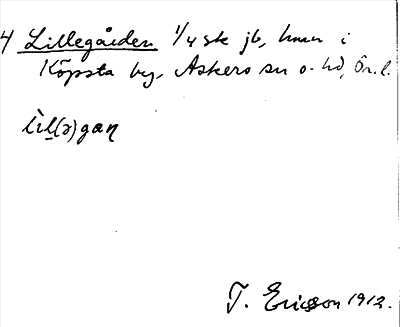 4 Lillegården 1/4 sk jb, hmn i
Köpsta by, Askers sn o. hd, Ör. l.
lìl(ə)gaɳ
T. Ericsson 1912.